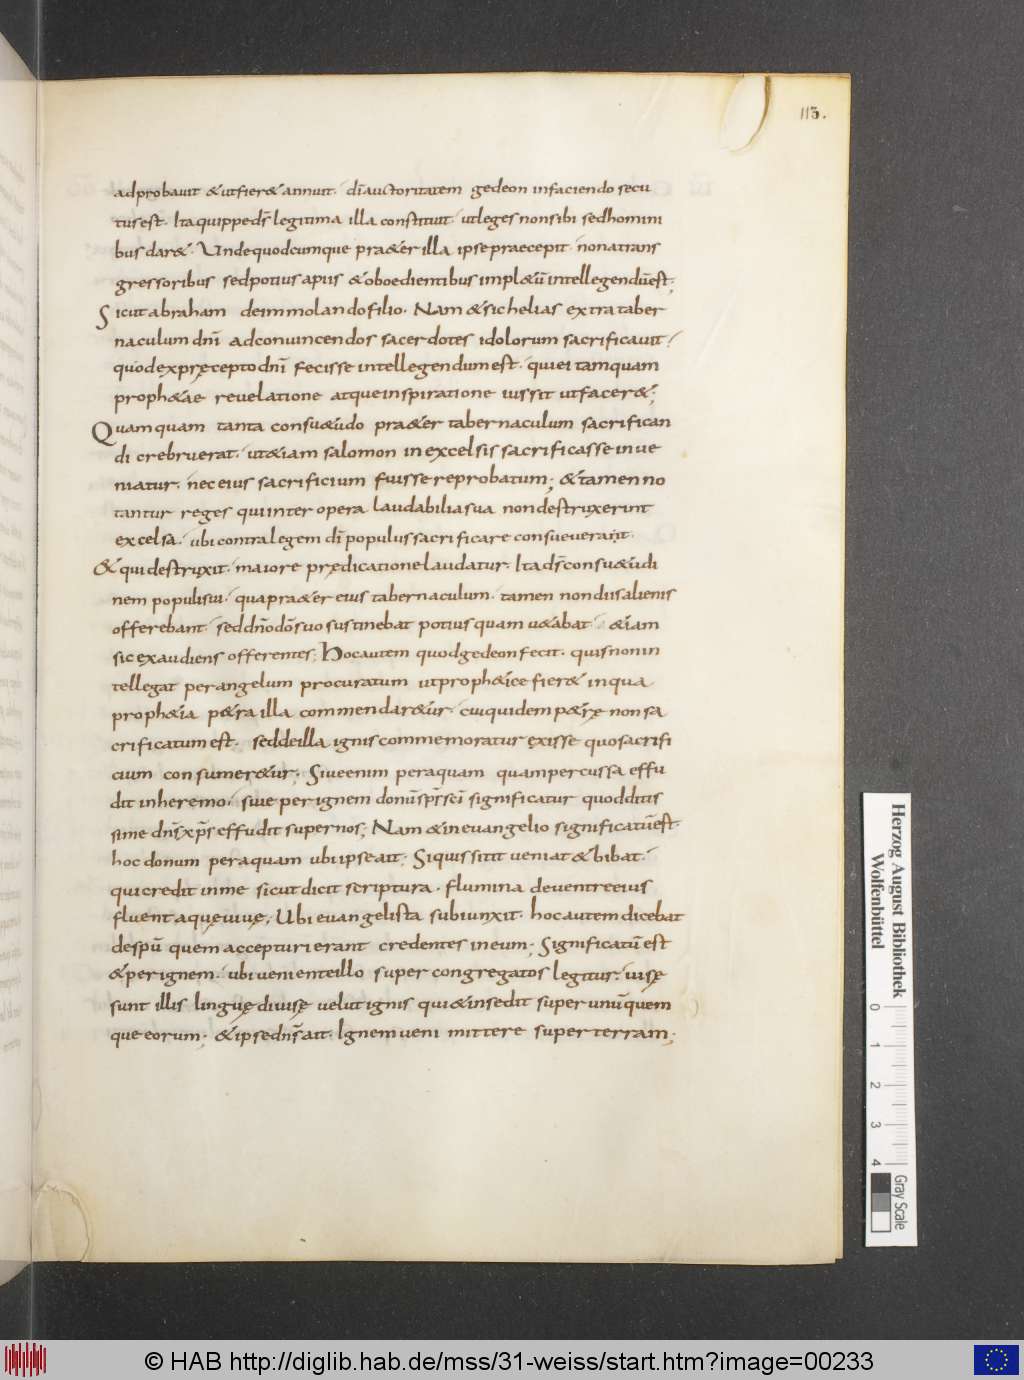 113.
adprobauit & utfier& annuit. dī auctoritatem gedeon infaciendo secu
tus est. Ita quippe ds̄ legitima illa constituit. ut leges non sibi sed homini
bus dar&. Unde quodcumque pra&er illa ipse praecepit. non a trans
gressoribus sed potius a piis & oboedientibus impl&ū intellegendū est;
Sicut abraham de immolando filio. Nam & sic helias extra taber
naculum dnī ad conuincendos sacerdotes idolorum sacrificauit;
quod ex pręcepto dnī fecisse intellegendum est. qui ei tamquam
proph&ae reuelatione atque inspiratione iussit ut facer&;
Quamquam tanta consu&udo pra&er tabernaculum sacrifican
di crebruerat. ut &iam salomon in excelsis sacrificasse inue
niatur. nec eius sacrificium fuisse reprobatum; & tamen no
tantur reges qui inter opera laudabilia sua non destruxerint
excelsa. ubi contra legem dī populus sacrificare consueuerant.
& qui destruxit. maiore prędicatione laudatur. Ita ds̄ consu&udi
nem populi sui. qua pra&er eius tabernaculum. tamen non diis alienis
offerebant. sed dn̄o dō suo sustinebat potius quam u&abat &iam
sic exaudiens offerentes; Hoc autem quod gedeon fecit. quis non in
tellegat per angelum procuratum ut proph&ice fier& in qua
proph&ia p&ra illa commendar&ur. cui quidem p&rę non sa
crificatum est. sed de illa ignis commemoratur exisse quo sacrifi
cium consumer&ur; Siue enim per aquam quam percussa effu
dit in heremo. siue per ignem donū sp̄s sc̄i significatur quod ditis
sime dn̄s xp̄s effudit super nos; Nam & in euangelio significatū est
hoc donum per aquam ubi ipse ait; Si quis sitit ueniat & bibat.
qui credit in me sicut dicit scriptura. flumina de uentre eius
fluent aquę uiuę; Ubi euangelista subiunxit. hoc autem dicebat
de spū quem accepturi erant credentes in eum; Significatū est
& per ignem. ubi ueniente illo super congregatos legitur; uisę
sunt illis linguę diuisę uelut ignis qui & insedit super unūquem
que eorum; & ipse dn̄s ait. Ignem ueni mittere super terram;
Herzog August Bibliothek
Wolfenbüttel
0 1 2 3 4
Gray Scale
© HAB http://diglib.hab.de/mss/31-weiss/start.htm?image=00233